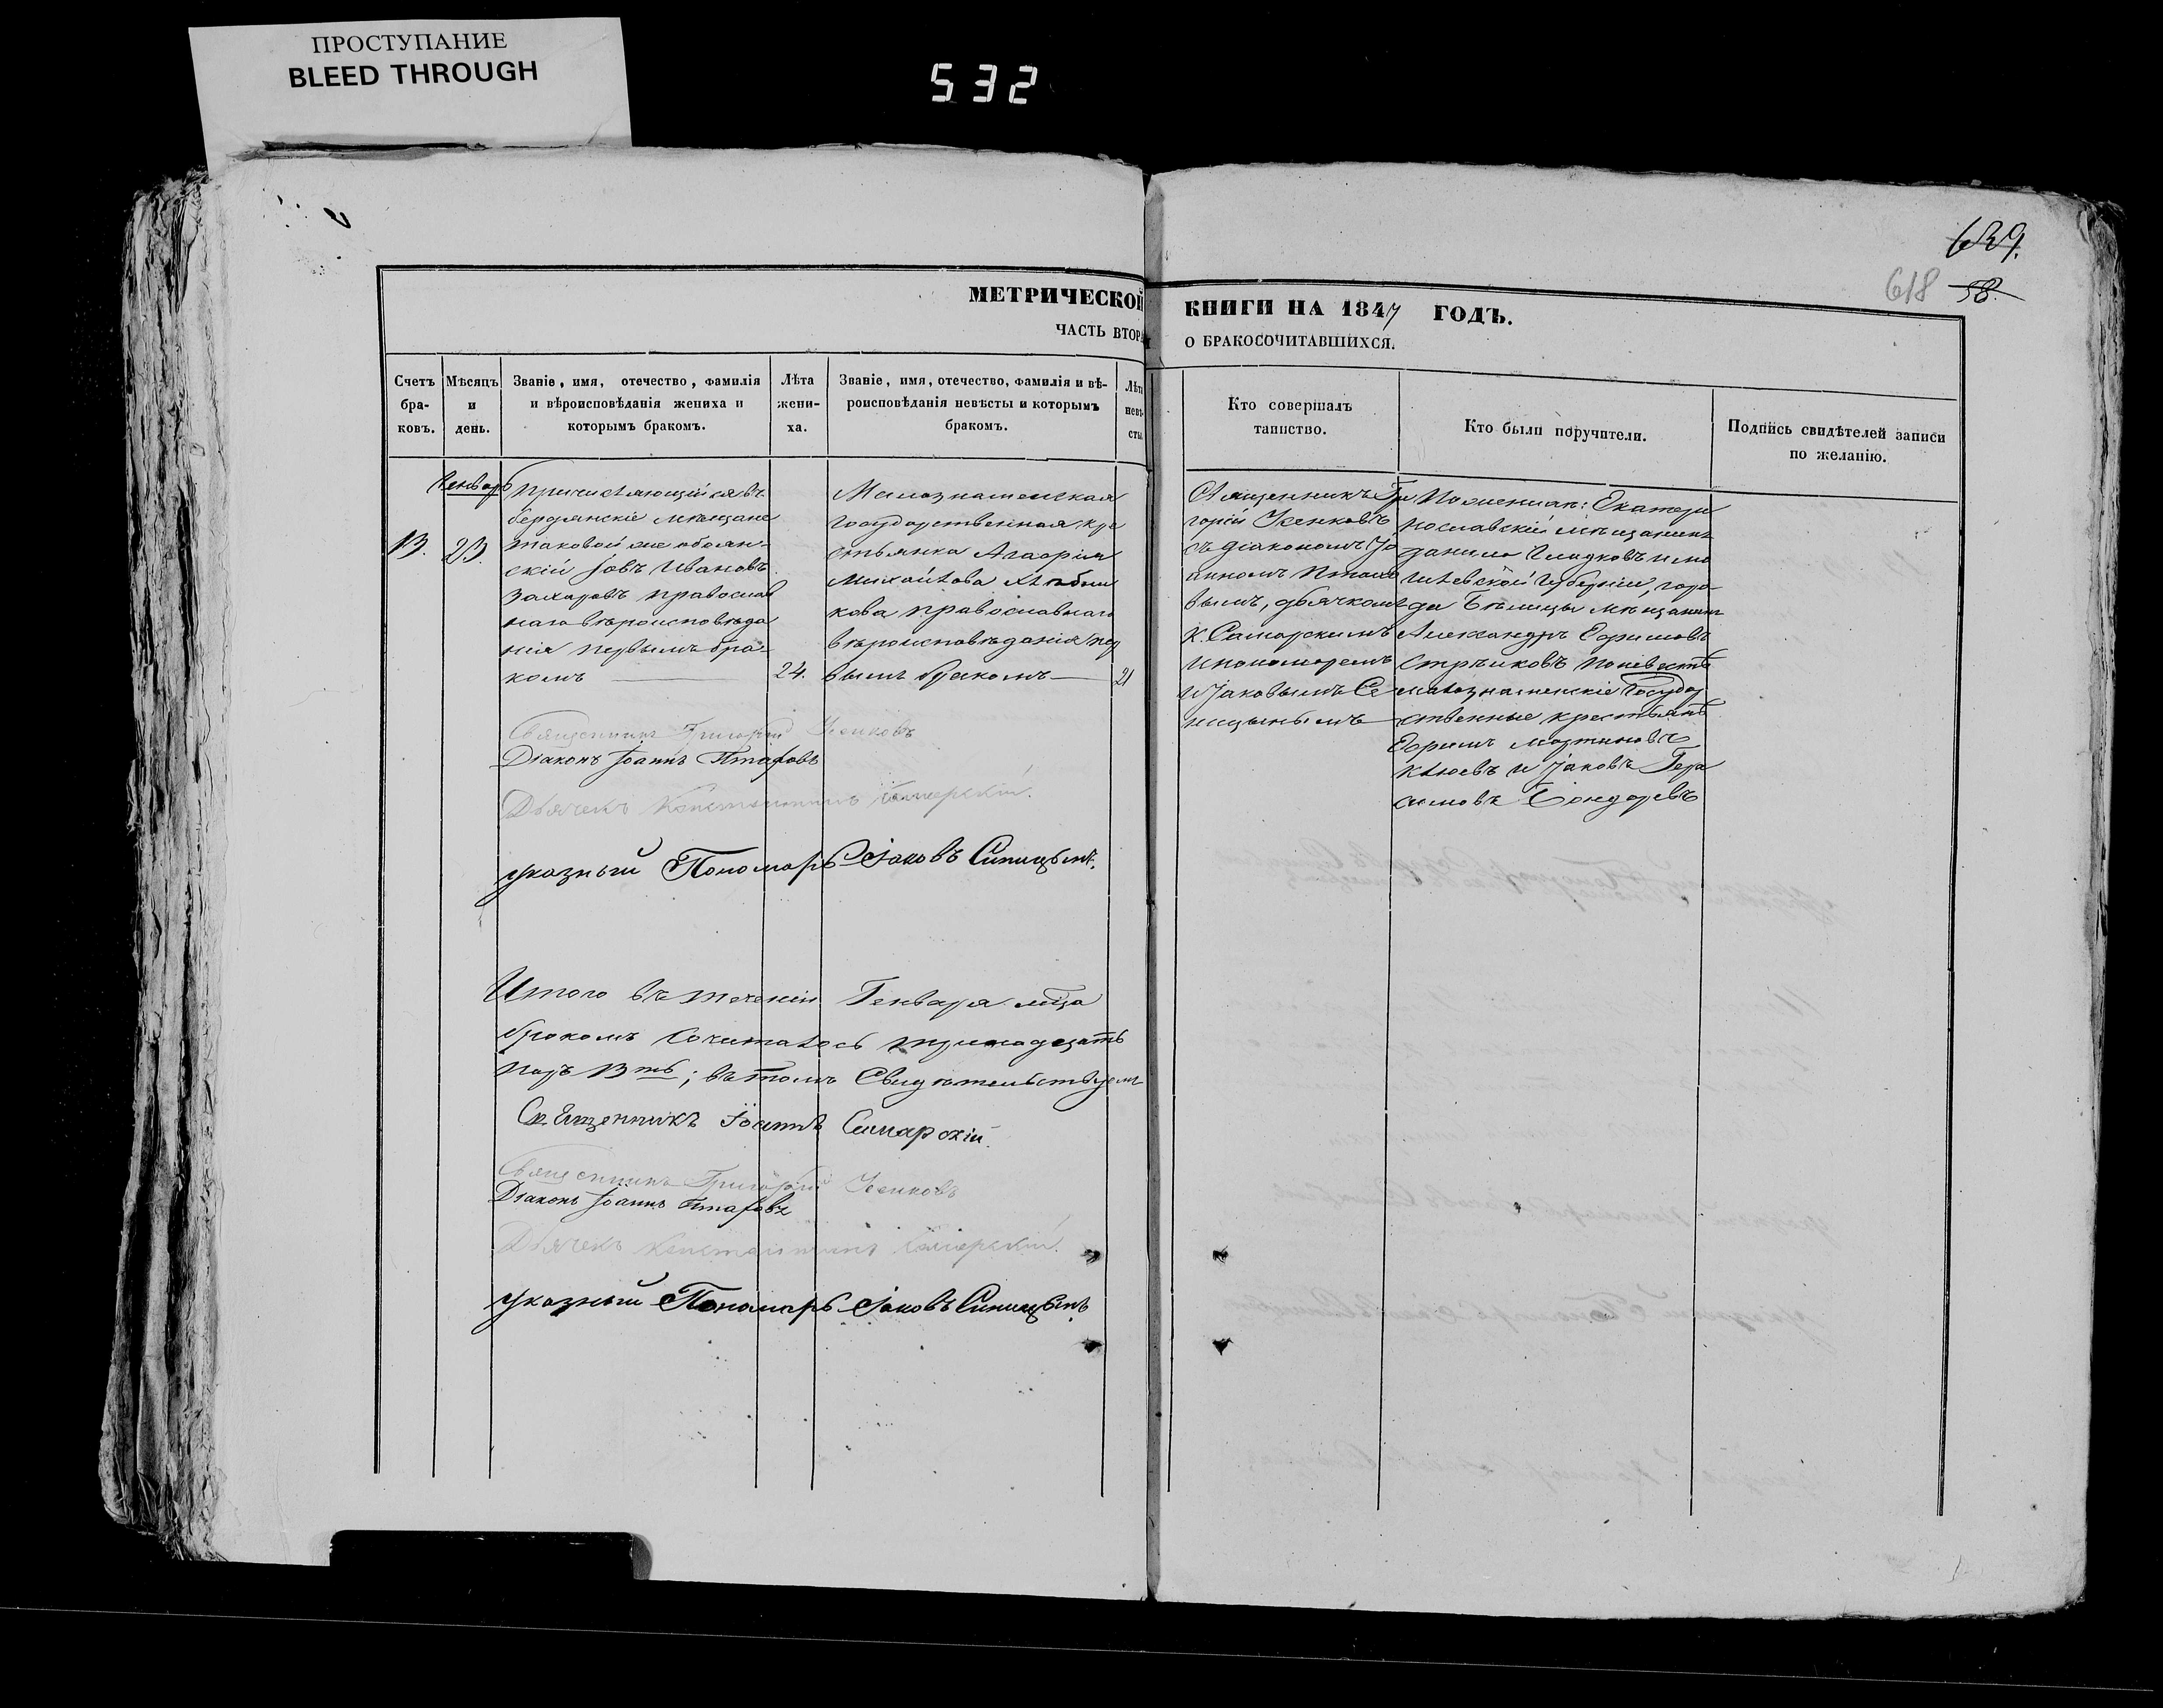 ПРОСТУПАНИЕ
BLEED THROUGH
532
639.
618 58.
МЕТРИЧЕСКОЙ КНИГИ НА 1847 ГОДЪ.
ЧАСТЬ ВТОРАЯ О БРАКОСОЧИТАВШИХСЯ.
Счетъ бра-ковъ.
Мѣсяцъ и день.
Званіе, имя, отечество, фамилія
и вѣроисповѣданія жениха и
которымъ бракомъ.
Лѣта жени-ха.
Званіе, имя, отечество, фамилія и вѣ-
роисповѣданія невѣсты и которымъ
бракомъ.
Лѣта невѣ-сты
Кто совершалъ
таинство.
Кто были поручители.
Подпись свидѣтелей записи
по желанію.
Генварь
13. 23.
причисляющійся въ
бердянскіе мѣщане
таковой же обоян-
скій Іовъ Ивановъ
Захаровъ православ
наго вѣроисповѣда
нія первымъ бра-
комъ
24.
Малознаменская
государственная кре
стьянка Агафія
Михайлова Хлѣбни
кова православнаго
вѣроисповѣданія пер
вымъ бракомъ
21
Священникъ Гри
горій Усенковъ
съ діакономъ Іо
анномъ Птахо
вымъ, дьячкомъ
К. Самарскимъ
и пономаремъ
Іаковымъ Си
ницынымъ
По женихѣ: Екатери
нославскій мѣщанинъ
Данило Гладковъ и мо
гилевской губерніи, горо-
да Бѣлицы мѣщанинъ
Александръ Ефимовъ
Стрѣлковъ по невѣстѣ
малознаменскіе Государ
ственные крестьяне
Ефимъ Мартиновъ
Клюевъ и Іаковъ Гера
симовъ Бондаревъ
Священникъ Григорій Усенковъ
Діаконъ Іоаннъ Птаховъ
Дьячекъ Константинъ Самарскій.
указный Пономарь Іаковъ Синицынъ.
Итого въ теченіи Генваря мца
бракомъ сочиталось тринадцать
паръ 13ть; въ томъ свидѣтельствуемъ
Священникъ Іоаннъ Самарскій.
Священникъ Григорій Усенковъ
Діаконъ Іоаннъ Птаховъ
Дьячекъ Константинъ Самарскій.
указный Пономарь Іаковъ Синицынъ.